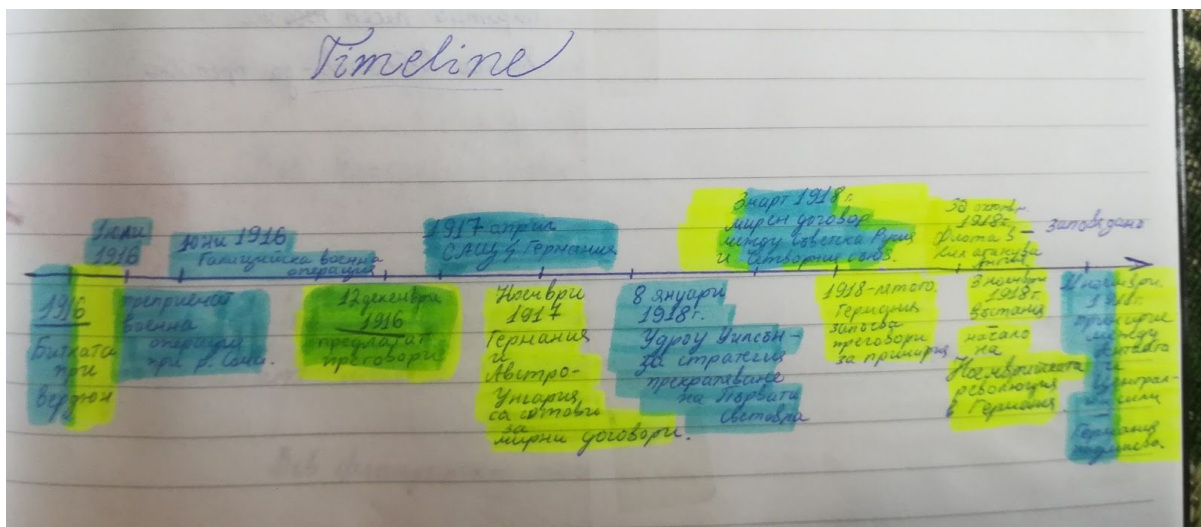 Timeline
1 юли
1916
юни 1916
Галицийска военна
операция
1917 април
САЩ Германия
3 март 1918 г.
мирен договор
между Съветска Русия
и Четворния съюз.
30 октомв.
1918 г.
Флота
заповядано
1916
Битката
при
Вердюн
военна
операция
при р. Сома.
12 декември
1916
предлагат
преговори
Ноември
1917
Германия
и
Австро-
Унгария
са готови
за
мирни договори.
8 януари
1918 г.
Удроу Уилсън-
за стратегия
прекратяване
на Първата
световна
1918-лятото.
Германия
започва
преговори
за примирие
3 ноември
1918 г.
Въстание
начало
на
Ноемврийската
революция
в Германия.
11 ноември.
1918 г.
примирие
между
Антанта
и
Централ-
сили
Германия